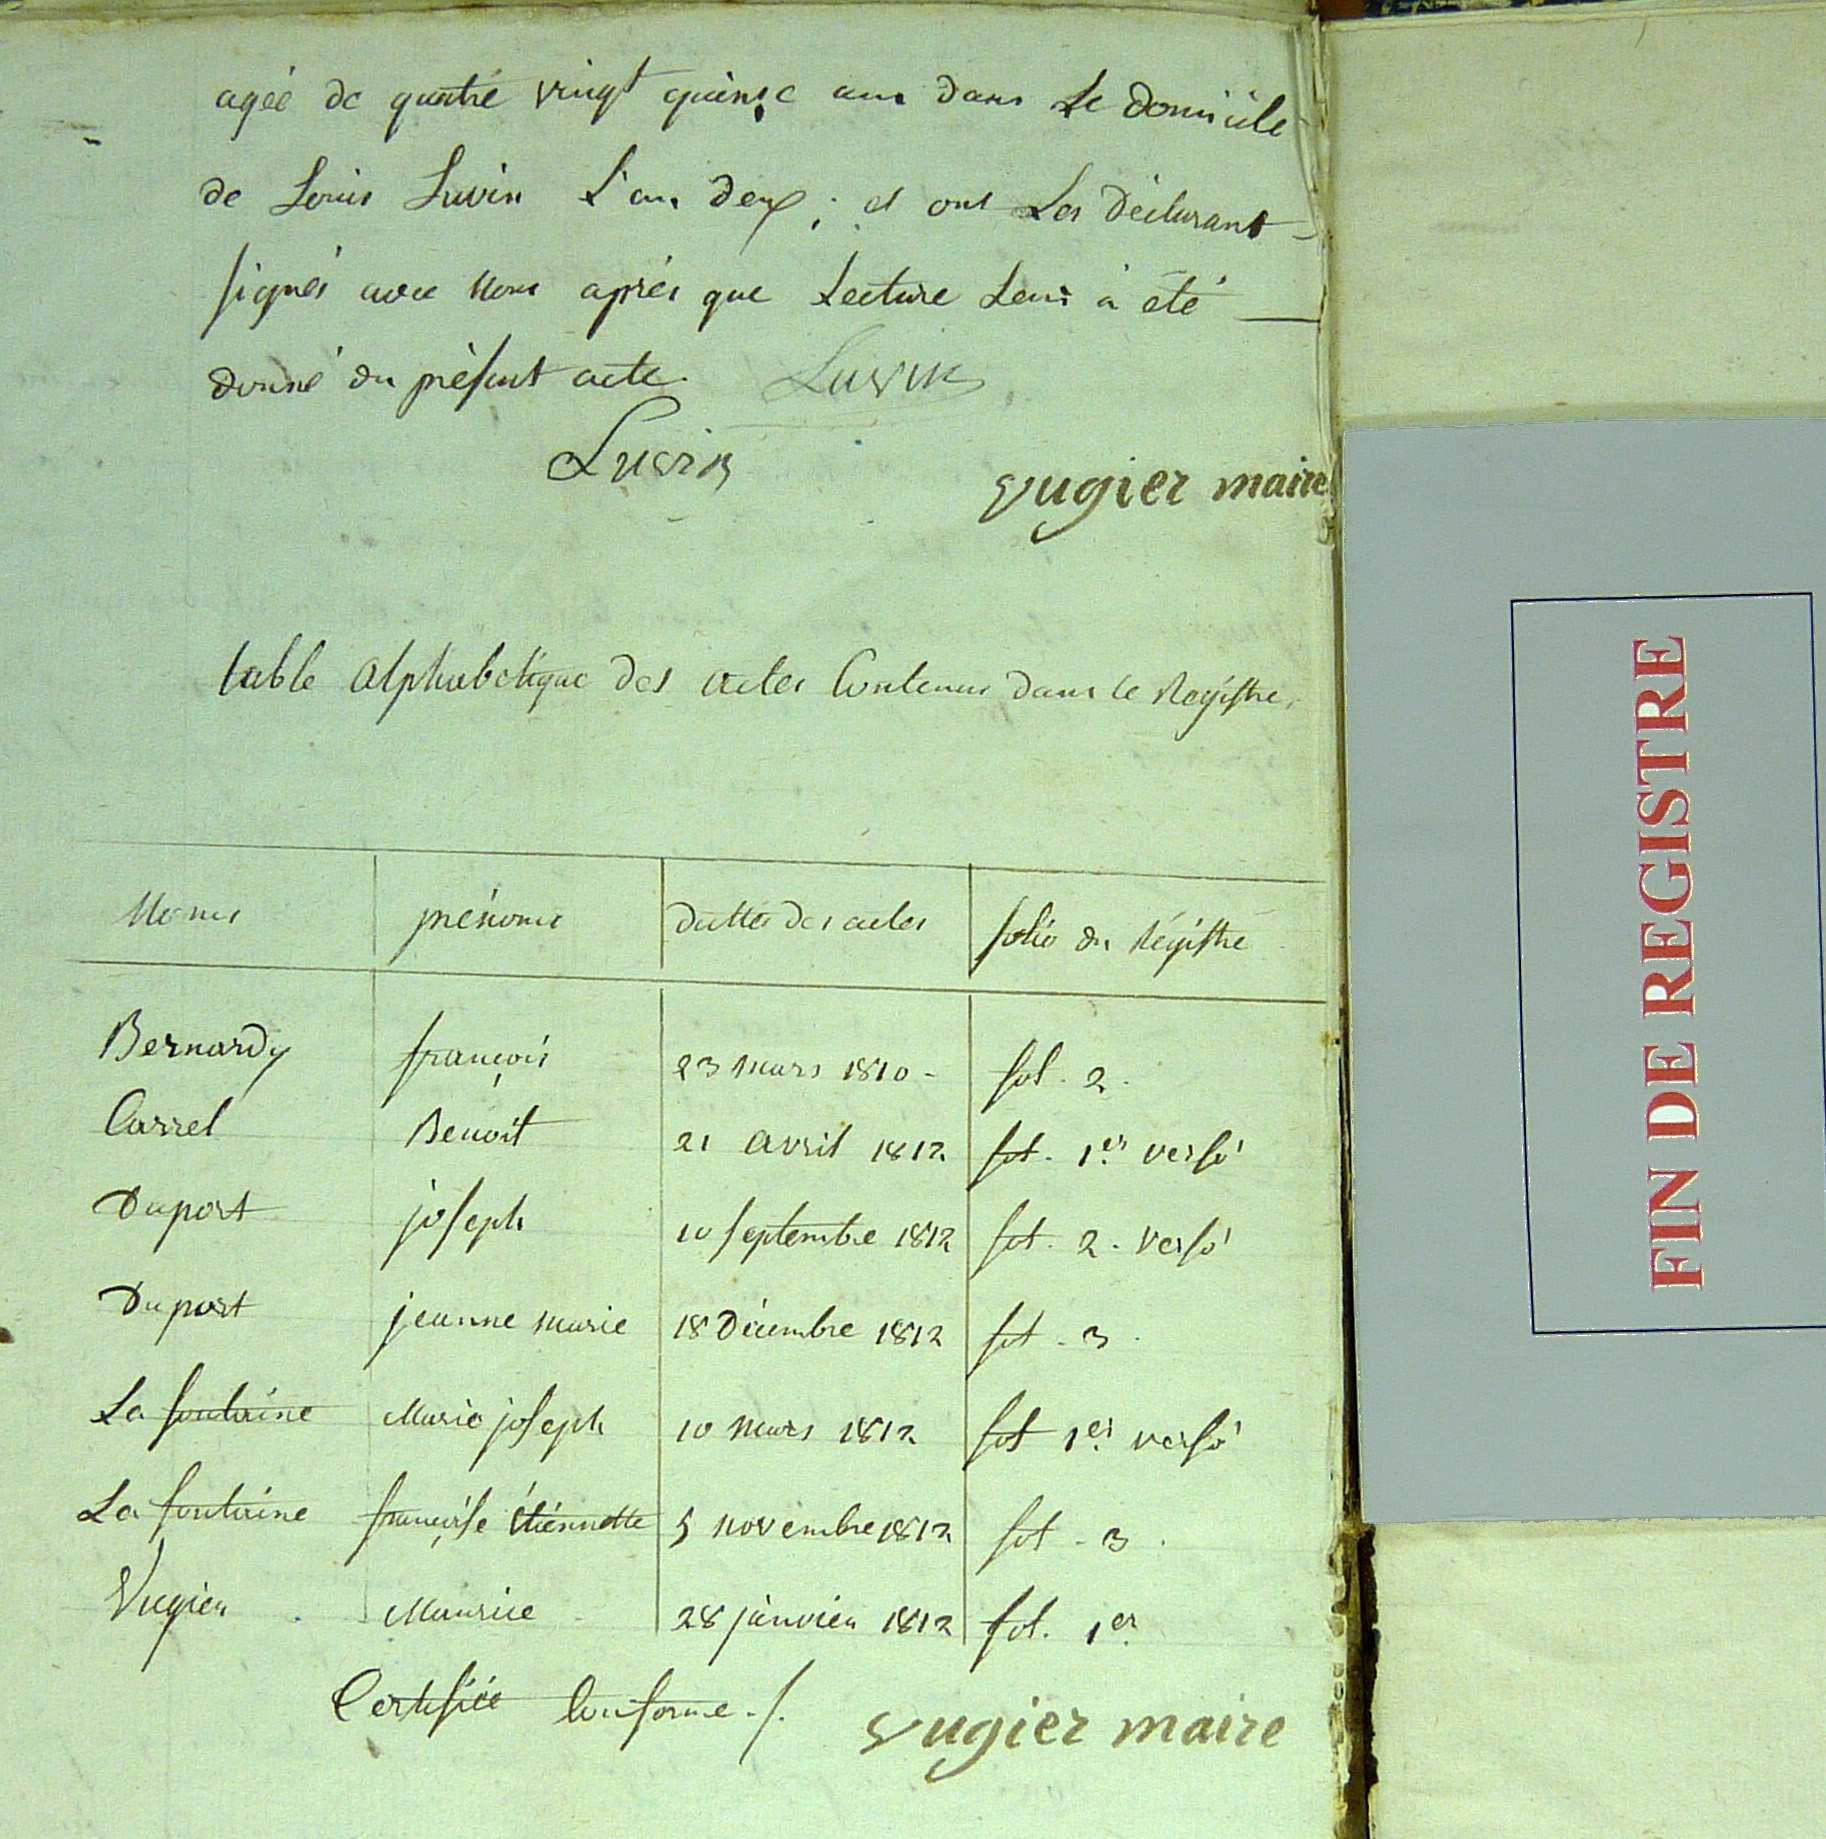 agée de quatre vingt quinze ans dans Le domicile
de Louis Luvin L'an deux ; et ont Les déclarant
signés avec nous après que Lecture Leur à été
donné du présent acte. Luvin
Luvin
vugier maire
table alphabetique des actes Contenus dans le Registre.
Noms prénoms dattes des actes folio du Régistre
Bernardy françois 23 mars 1810 - fol. 2.
Carrel Benoit 21 avril 1812 fol. 1er verso
Duport joseph 10 septembre 1812 fol. 2. verso
Duport jeanne marie 18 Décembre 1812 fol - 3.
La fontaine Marie joseph 10 mars 1812 fol 1er verso
La fontaine françoise étiennette 5 novembre 1812 fol - 3.
Vugier Maurice 28 janvier 1812 fol. 1er
Certifiée Conforme ./.
vugier maire
FIN DE REGISTRE